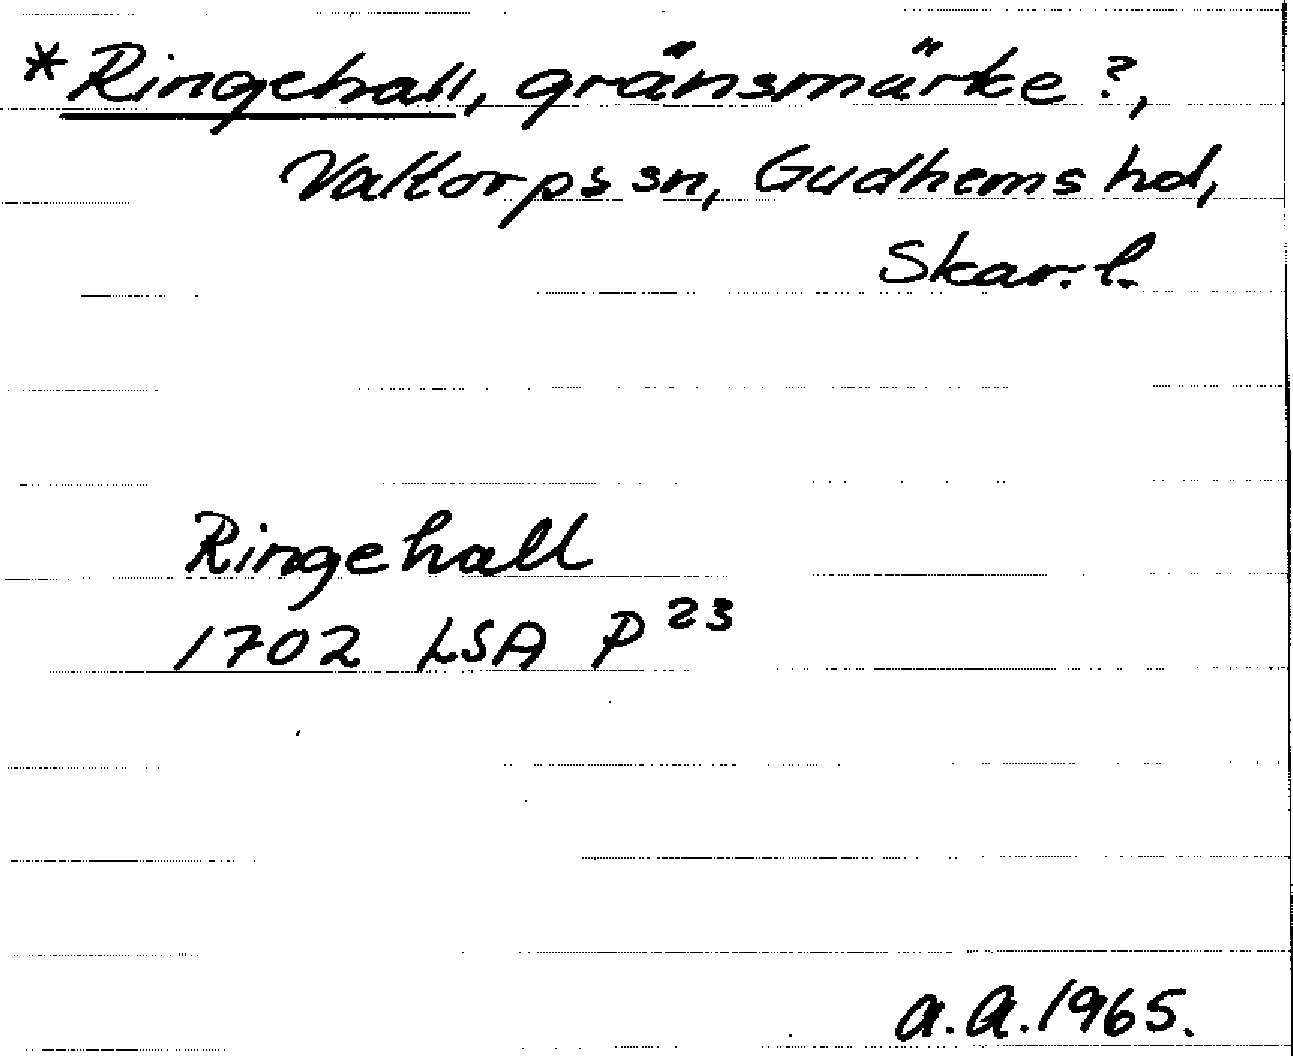 *Ringehall, gränsmärke?,
Valtorps sn, Gudhems hd,
Skar. l.
Ringehall
1702 LSA P 23
a.a. 1965.